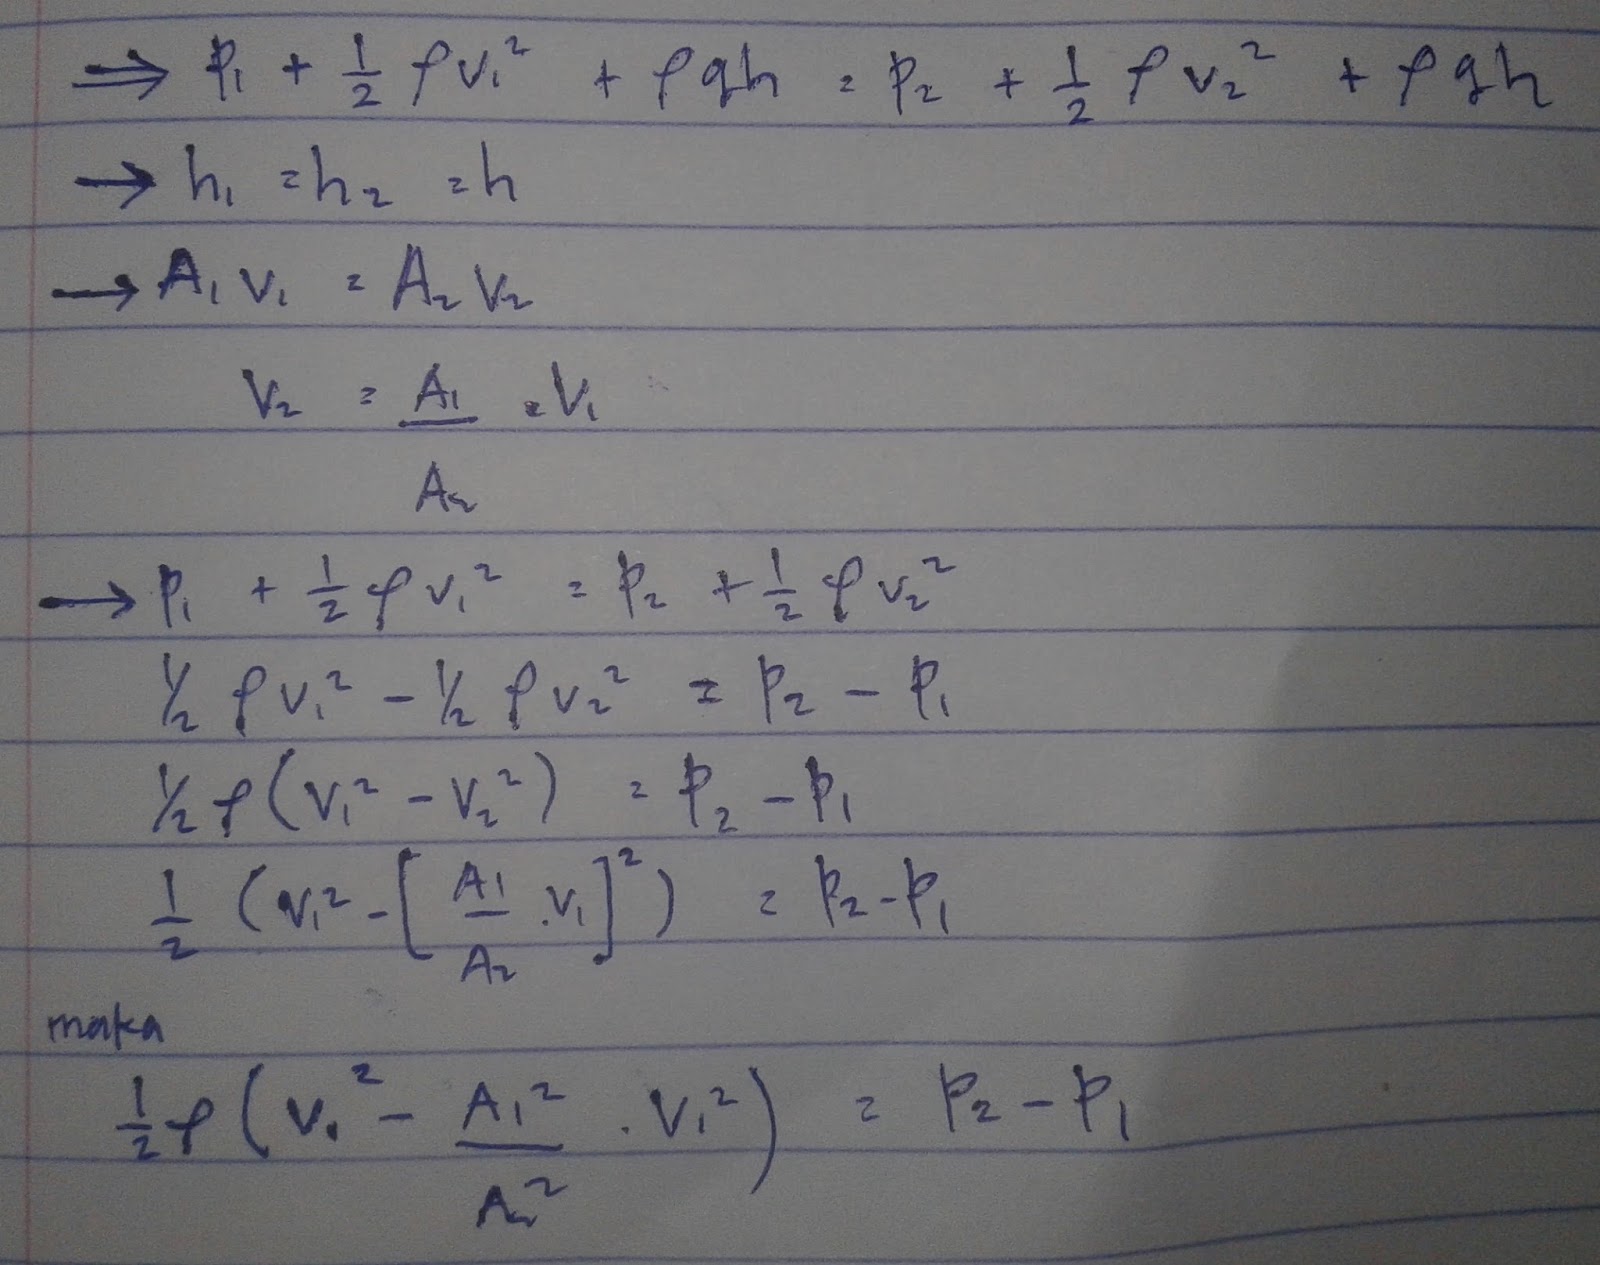 ⇒ p₁ + 1/2 ρv₁² + ρgh = p₂ + 1/2 ρv₂² + ρgh
→ h₁ = h₂ = h
→ A₁v₁ = A₂v₂
v₂ = A₁/A₂ . v₁
→ p₁ + 1/2 ρv₁² = p₂ + 1/2 ρv₂²
½ ρv₁² - ½ ρv₂² = p₂ - p₁
½ρ(v₁² - v₂²) = p₂ - p₁
1/2 (v₁² - [A₁/A₂ . v₁]²) = p₂ - p₁
maka
1/2 ρ(v₁² - A₁²/A₂² . v₁²) = p₂ - p₁